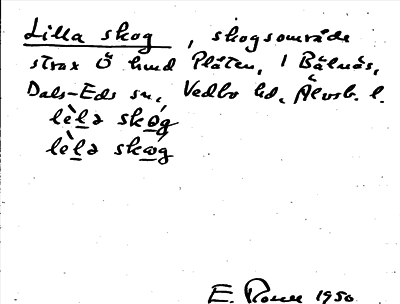 Lilla skog, skogsområde
strax Ö hmd Plåten, / Bälnäs,
Dals-Eds sn., Vedbo hd, Älvsb. l.
lèlə skog
lèlə skωg
E. 1950